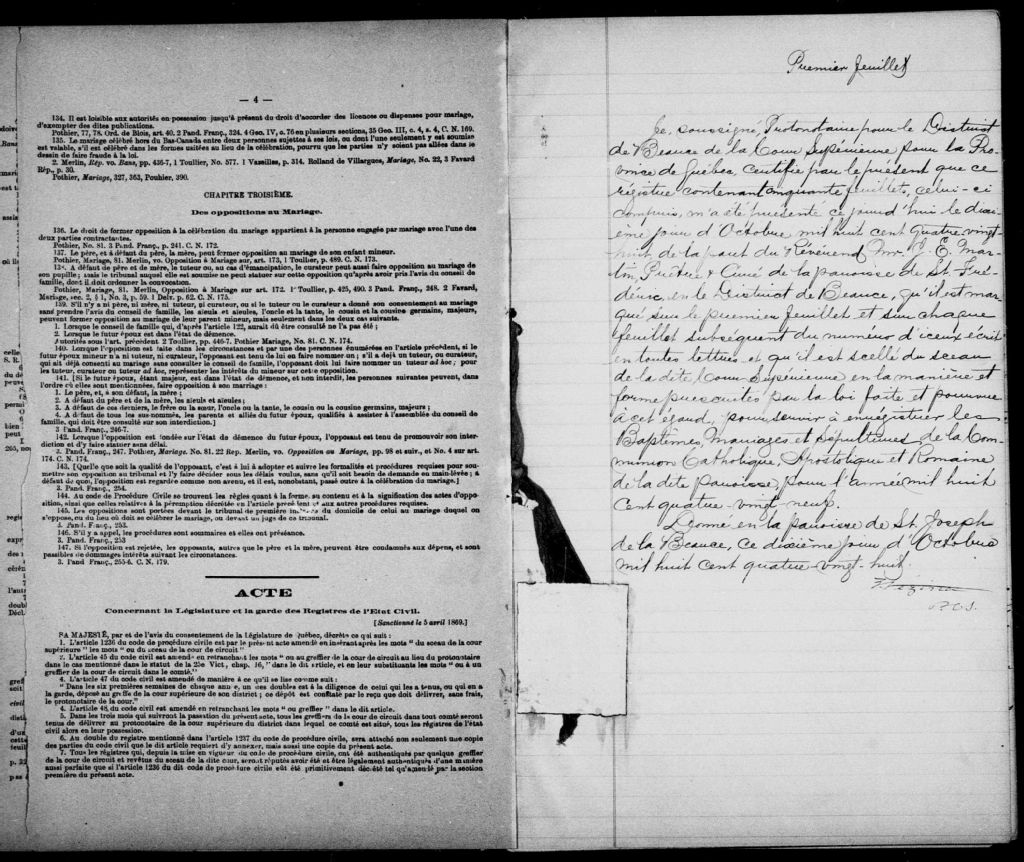 — 4 —
134. Il est loisible aux autorités en possession jusqu'à présent du droit d'accorder des licences ou dispenses pour mariage,
d'exempter des dites publications.
Pothier, 77, 78. Ord. de Blois, art. 40. 2 Pand. Franç., 324. 4 Geo. IV, c. 76 en plusieurs sections, 35 Geo. III, c. 4, s. 4, C. N. 169.
135. Le mariage célébré hors du Bas-Canada entre deux personnes sujettes à ses lois, ou dont l'une seulement y est soumise
est valable, s'il est célébré dans les formes usitées au lieu de la célébration, pourvu que les parties n'y soient pas allées dans le
dessein de faire fraude à la loi.
2. Merlin, Rép. vo. Bans, pp. 436-7, 1 Toullier, No. 577. 1 Vazeilles, p. 314. Rolland de Villargues, Mariage, No. 22, 3 Favard
Rép., p. 30.
Pothier, Mariage, 327, 363, Pouhier, 390.
CHAPITRE TROISIÈME.
Des oppositions au Mariage.
136. Le droit de former opposition à la célébration du mariage appartient à la personne engagée par mariage avec l'une des
deux parties contractantes.
Pothier, No. 81. 3 Pand. Franç., p. 241. C. N. 172.
137. Le père, et à défaut du père, la mère, peut former opposition au mariage de son enfant mineur.
Pothier, Mariage, 81. Merlin, vo. Opposition à Mariage sur art. 173, 1 Toullier, p. 489. C. N. 173.
138. A défaut de père et de mère, le tuteur ou, au cas d'émancipation, le curateur peut aussi faire opposition au mariage de
son pupille; mais le tribunal auquel elle est soumise ne peut statuer sur cette opposition qu'après avoir pris l'avis du conseil de
famille, dont il doit ordonner la convocation.
Pothier, Mariage, 81. Merlin, Opposition à Mariage sur art. 172. 1 Toullier, p. 425, 490. 3 Pand. Franç., 248. 2 Favard,
Mariage, sec. 2, § 1, No. 3, p. 59. 1 Delv. p. 62. C. N. 175.
139. S'il n'y a ni père, ni mère, ni tuteur, ni curateur, ou si le tuteur ou le curateur a donné son consentement au mariage
sans prendre l'avis du conseil de famille, les aïeuls et aïeules, l'oncle et la tante, le cousin et la cousine germains, majeurs,
peuvent former opposition au mariage de leur parent mineur, mais seulement dans les deux cas suivants.
1. Lorsque le conseil de famille qui, d'après l'article 122, aurait dû être consulté ne l'a pas été;
2. Lorsque le futur époux est dans l'état de démence.
Autorités sous l'art. précédent 2 Toullier, pp. 446-7. Pothier Mariage, No. 81. C. N. 174.
140. Lorsque l'opposition est faite dans les circonstances et par une des personnes énumérées en l'article précédent, si le
futur époux mineur n'a ni tuteur, ni curateur, l'opposant est tenu de lui en faire nommer un; s'il a déjà un tuteur, ou curateur,
qui ait déjà consenti au mariage sans consulter le conseil de famille, l'opposant doit lui faire nommer un tuteur ad hoc; pour
les tuteur, curateur ou tuteur ad hoc, représenter les intérêts du mineur sur cette opposition.
141. [Si le futur époux, étant majeur, est dans l'état de démence, et non interdit, les personnes suivantes peuvent, dans
l'ordre où elles sont mentionnées, faire opposition à son mariage:
1. Le père, et, à son défaut, la mère;
2. A défaut du père et de la mère, les aïeuls et aïeules;
3. A défaut de ces derniers, le frère ou la sœur, l'oncle ou la tante, le cousin ou la cousine germains, majeurs;
4. A défaut de tous les sus-nommés, les parents et alliés du futur époux, qualifiés à assister à l'assemblée du conseil de
famille, qui doit être consulté sur son interdiction.]
3 Pand. Franç., 246-7.
142. Lorsque l'opposition est fondée sur l'état de démence du futur époux, l'opposant est tenu de promouvoir son inter-
diction et d'y faire statuer sans délai.
3. Pand. Franç., 247. Pothier, Mariage. No. 81. 22 Rep. Merlin, vo. Opposition au Mariage, pp. 98 et suiv., et No. 4 sur art.
174. C. N. 174.
143. [Quelle que soit la qualité de l'opposant, c'est à lui à adopter et suivre les formalités et procédures requises pour sou-
mettre son opposition au tribunal et l'y faire décider sous les délais voulus, sans qu'il soit besoin de demande en main-levée; à
défaut de quoi, l'opposition est regardée comme non avenu, et il est, nonobstant, passé outre à la célébration du mariage.]
3. Pand. Franç., 254.
144. Au code de Procédure Civile se trouvent les règles quant à la forme, au contenu et à la signification des actes d'oppo-
sition, ainsi que celles relatives à la péremption décrétée en l'article précédent et aux autres procédures requises.
145. Les oppositions sont portées devant le tribunal de première instance du domicile de celui au mariage duquel on
s'oppose, ou du lieu où doit se célébrer le mariage, ou devant un juge de ce tribunal.
3. Pand. Franç., 253.
146. S'il y a appel, les procédures sont sommaires et elles ont préséance.
3. Pand. Franç., 253
147. Si l'opposition est rejetée, les opposants, autres que le père et la mère, peuvent être condamnés aux dépens, et sont
passibles de dommages intérêts suivant les circonstances.
3. Pand. Franç., 255-6. C. N. 179.
ACTE
Concernant la Législature et la garde des Registres de l'Etat Civil.
[Sanctionné le 5 avril 1869.]
SA MAJESTÉ, par et de l'avis du consentement de la Législature de Québec, décrète ce qui suit:
1. L'article 1236 du code de procédure civile est par le présent acte amendé en insérant après les mots " du sceau de la cour
supérieure " les mots " ou du sceau de la cour de circuit "
2. L'article 45 du code civil est amendé en retranchant les mots " ou au greffier de la cour de circuit au lieu du protonotaire
dans le cas mentionné dans le statut de la 25e Vict., chap. 16, " dans le dit article, et en leur substituant les mots " ou à un
greffier de la cour de circuit dans le comté."
4. L'article 47 du code civil est amendé de manière à ce qu'il se lise comme suit:
" Dans les six premières semaines de chaque année, un des doubles est à la diligence de celui qui les a tenus, ou qui en a
la garde, déposé au greffe de la cour supérieure de son district; ce dépôt est constaté par le reçu que doit délivrer, sans frais,
le protonotaire de la cour."
4. L'article 48 du code civil est amendé en retranchant les mots " ou greffier " dans le dit article.
5. Dans les trois mois qui suivront la passation du présent acte, tous les greffiers de la cour de circuit dans tout comté seront
tenus de délivrer au protonotaire de la cour supérieure du district dans lequel ce comté est situé, tous les registres de l'état
civil alors en leur possession.
6. Au double du registre mentionné dans l'article 1237 du code de procédure civile, sera attaché non seulement une copie
des parties du code civil que le dit article requiert d'y annexer, mais aussi une copie du présent acte.
7. Tous les registres qui, depuis la mise en vigueur du code de procédure civile, ont été authentiqués par quelque greffier
de la cour de circuit et revêtus du sceau de la dite cour, seront réputés avoir été et être légalement authentiqués d'une manière
aussi parfaite que si l'article 1236 du dit code de procédure civile eût été primitivement décrété tel qu'amendé par la section
première du présent acte.
Premier feuillet
Je, soussigné, Protonotaire pour le District
de Beauce de la Cour Supérieure pour la Pro-
vince de Québec, certifie par le présent que ce
régistre contenant cinquante feuillets, celui-ci
compris, m'a été présenté ce jourd'hui le dixi-
ème jour d'Octobre mil huit cent quatre vingt
huit de la part du Révérend Mr. J. E. Mar-
tin, Prêtre & Curé de la paroisse de St. Fré-
déric, en le District de Beauce, qu'il est mar-
qué sur le premier feuillet et sur chaque
feuillet subséquent du numéro d'iceux écrit
en toutes lettres et qu'il est scellé du sceau
de la dite Cour Supérieure en la manière et
forme prescrites par la loi faite et pourvue
à cet égard, pour servir à enrégistrer les
Baptêmes, Mariages et Sépultures de la Com-
munion Catholique, Apostolique et Romaine
de la dite paroisse pour l'année mil huit
cent quatre-vingt-neuf.
Donné en la paroisse de St. Joseph
de la Beauce, ce dixième jour d'Octobre
mil huit cent quatre-vingt-huit.
P.C.S.